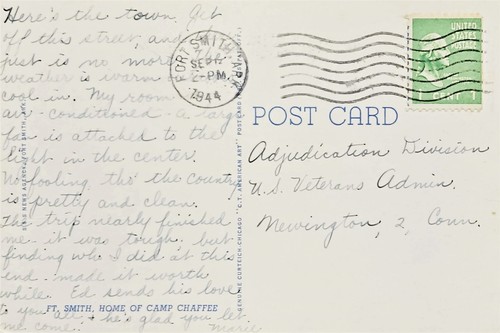 Here's the town. Get
off this street, and
just is no more
weather is warm
cool in. My room
air-conditioned - a large
fan is attached to the
light in the center.
No fooling, tho' the country
is pretty and clean.
The trip nearly finished
me - it was tough, but
finding who I did at this
end made it worth
while. Ed sends his love
to you all, + he's glad you let
me come. Marie
FT. SMITH, HOME OF CAMP CHAFFEE
FORT SMITH, ARK.
SEP
2-PM
1944
UNITED
STATES
POSTAGE
POST CARD
Adjudication Division
U.S. Veterans Admin.
Newington, 2, Conn.
GENUINE CURTEICH-CHICAGO "C.T. AMERICAN ART" POST CARD
NEWS AGENCY, FORT SMITH, ARK.